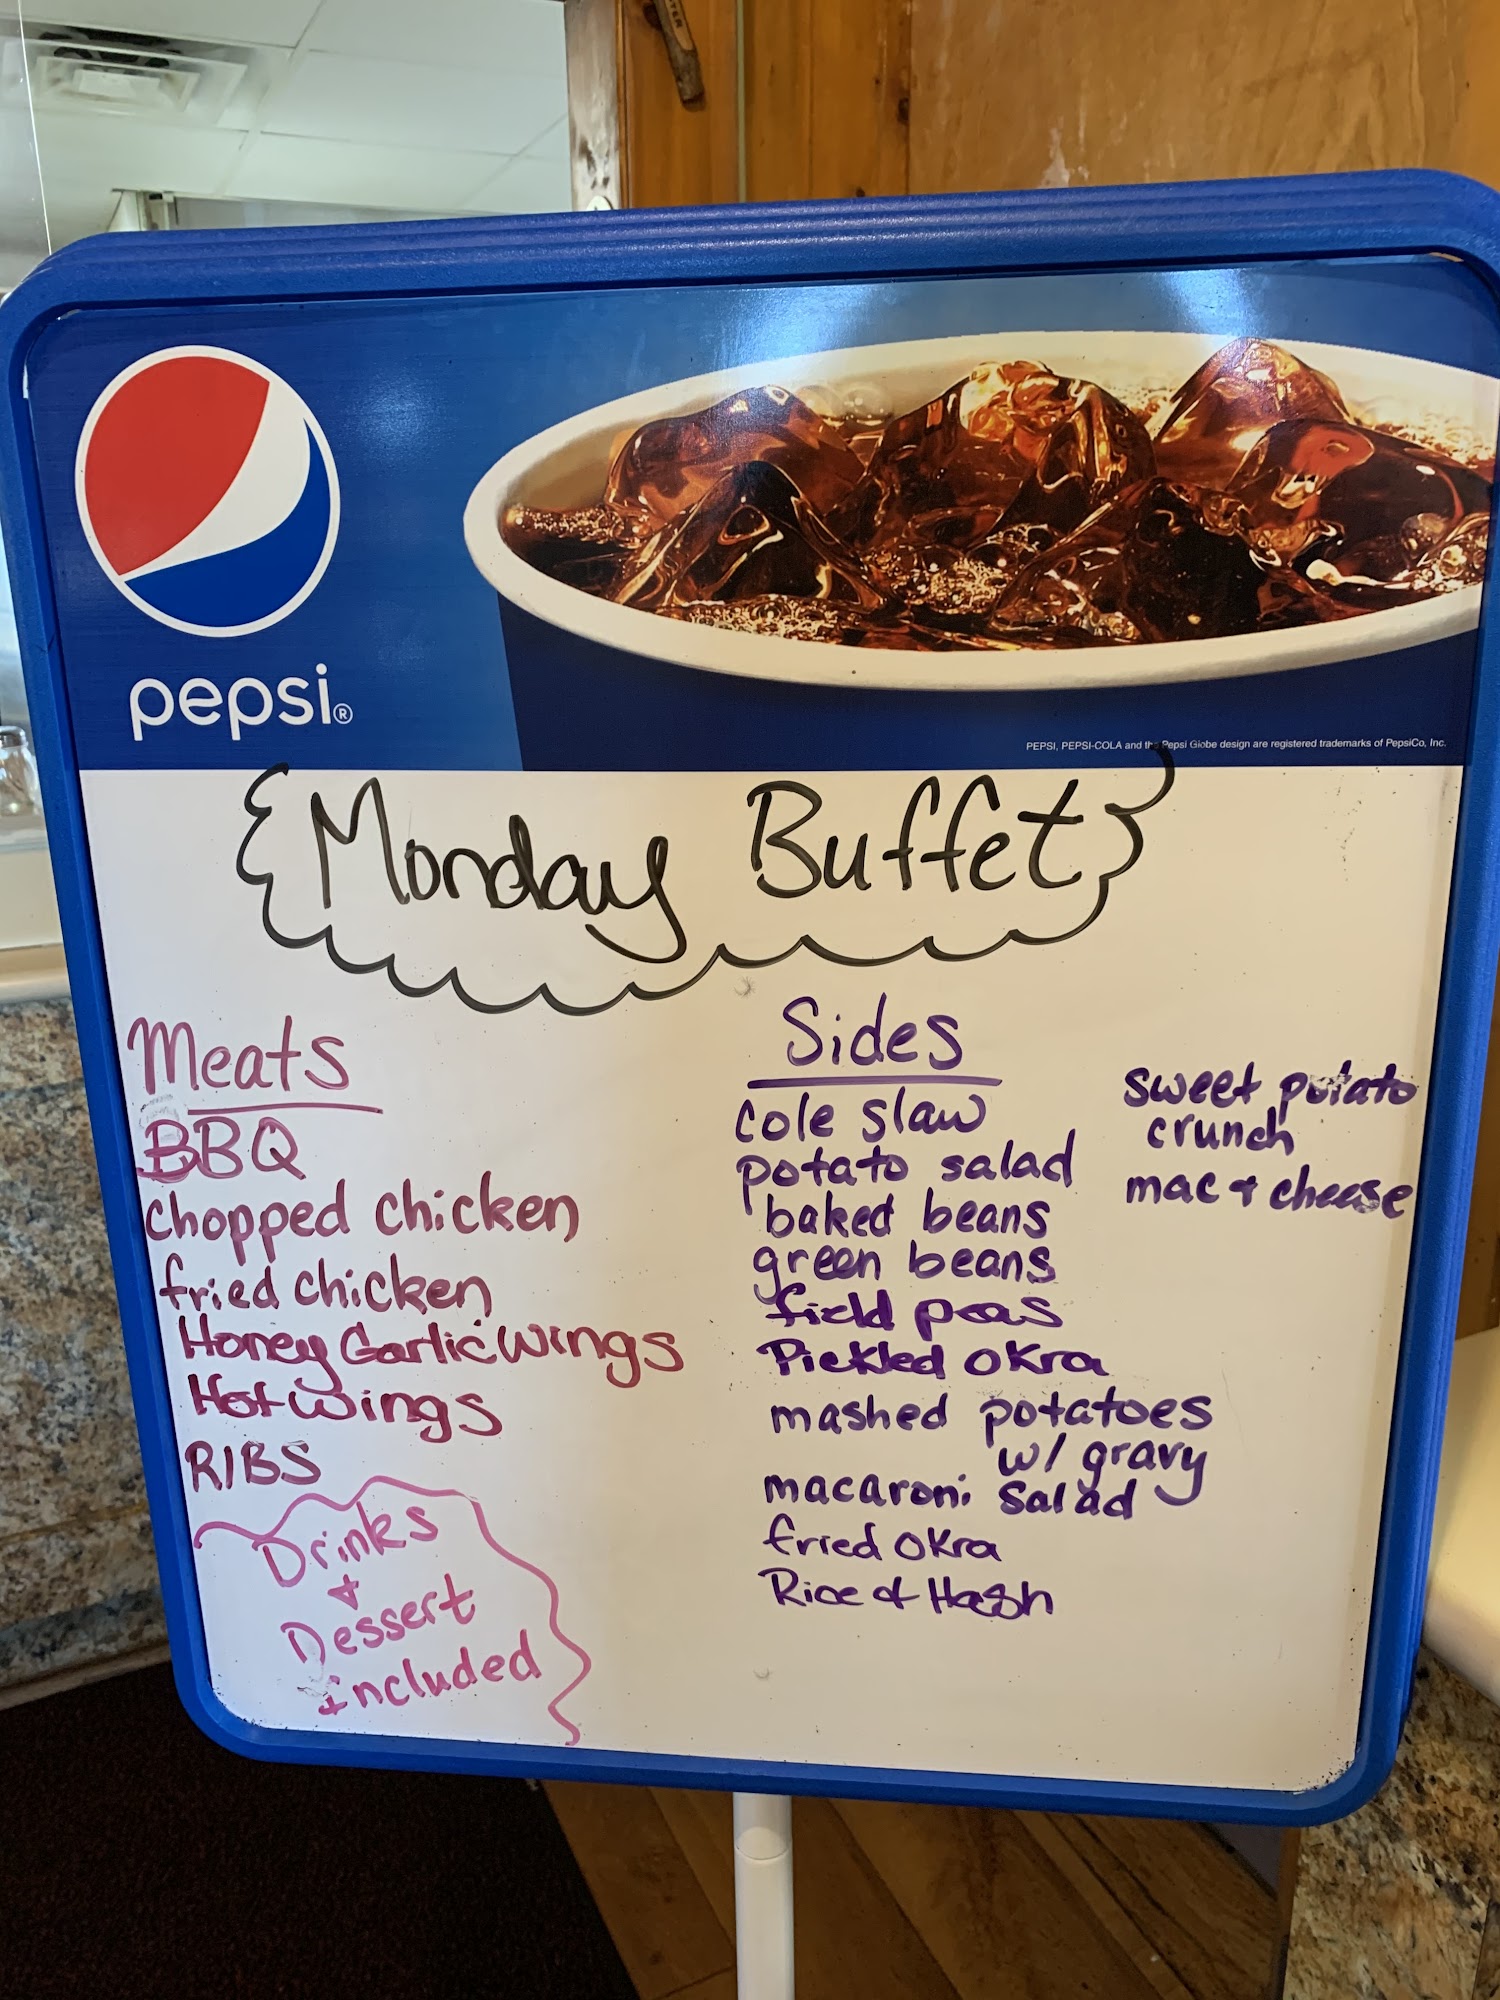 pepsi®
PEPSI, PEPSI-COLA and the Pepsi Globe design are registered trademarks of PepsiCo, Inc.
Monday Buffet
Meats
BBQ
chopped chicken
fried chicken
Honey Garlic wings
Hot wings
RIBS
Drinks
+
Dessert
included
Sides
cole slaw
potato salad
baked beans
green beans
field peas
Pickled Okra
mashed potatoes
w/ gravy
macaroni salad
fried Okra
Rice & Hash
sweet potato
crunch
mac + cheese